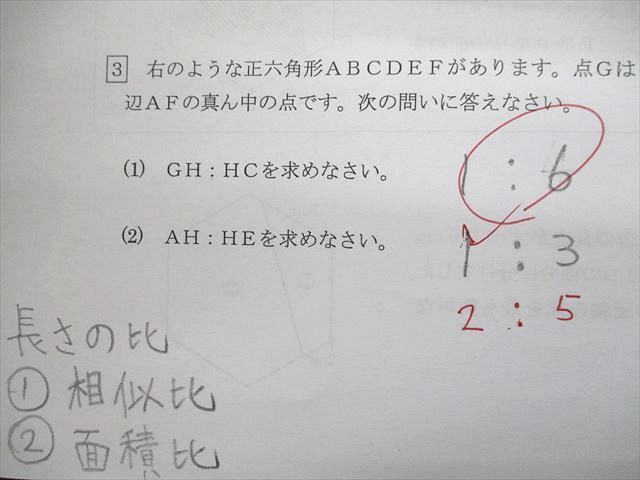 3 右のような正六角形ABCDEFがあります。点Gは
辺AFの真ん中の点です。次の問いに答えなさい。
(1) GH:HCを求めなさい。
1:6
(2) AH:HEを求めなさい。
1:3
2:5
長さの比
① 相似比
② 面積比